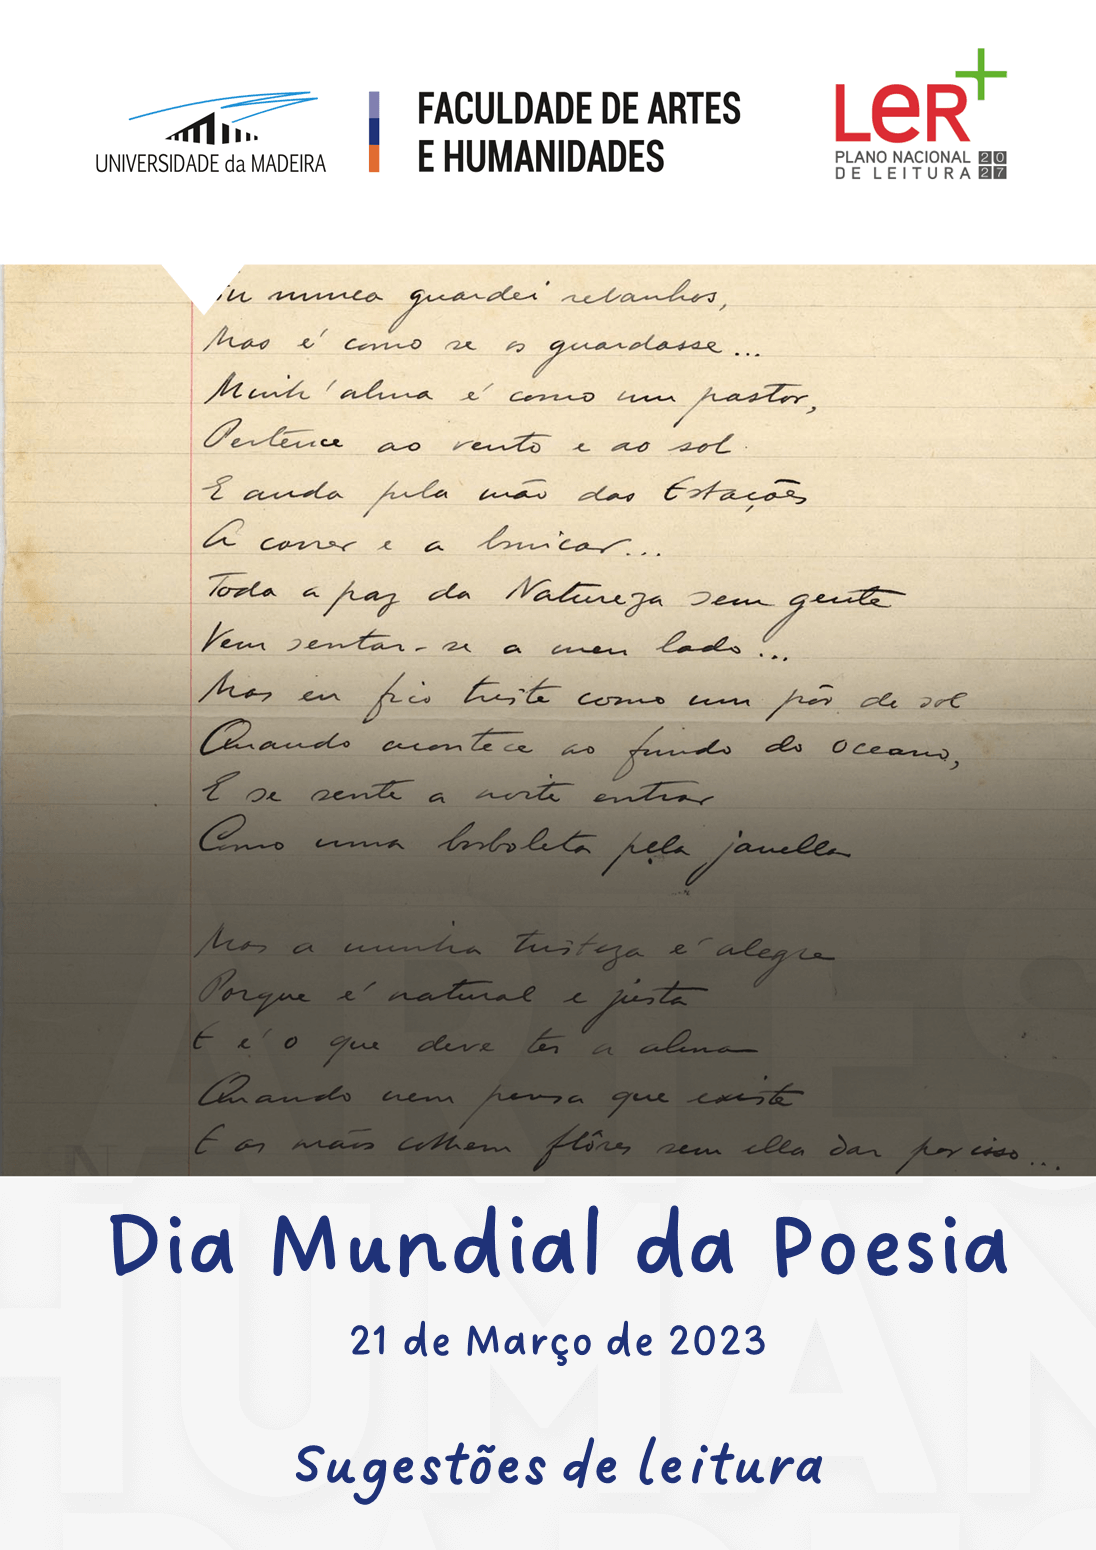 UNIVERSIDADE da MADEIRA
FACULDADE DE ARTES
E HUMANIDADES
LeR+
PLANO NACIONAL
DE LEITURA
20
27
Eu nunca guardei rebanhos,
Mas é como se os guardasse...
Minh'alma é como um pastor,
Pertence ao vento e ao sol
E anda pela mão das Estações
A correr e a brincar...
Toda a paz da Natureza sem gente
Vem sentar-se a meu lado...
Mas eu fico triste como um pôr de sol
Quando acontece ao fundo do oceano,
E se sente a noite entrar
Como uma borboleta pela janella
Mas a minha tristeza é alegre
Porque é natural e justa
E é o que deve ter a alma
Quando nem pensa que existe
E as mãos colhem flôres sem ella dar por isso...
Dia Mundial da Poesia
21 de Março de 2023
Sugestões de leitura